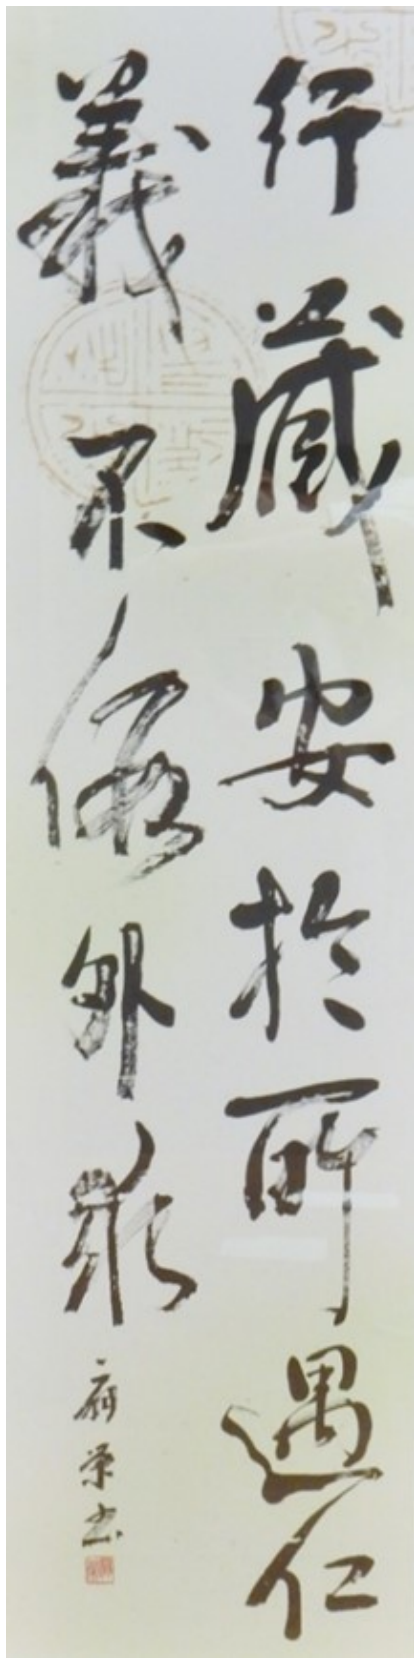 行藏安於所遇仁
義不假外求
榮書